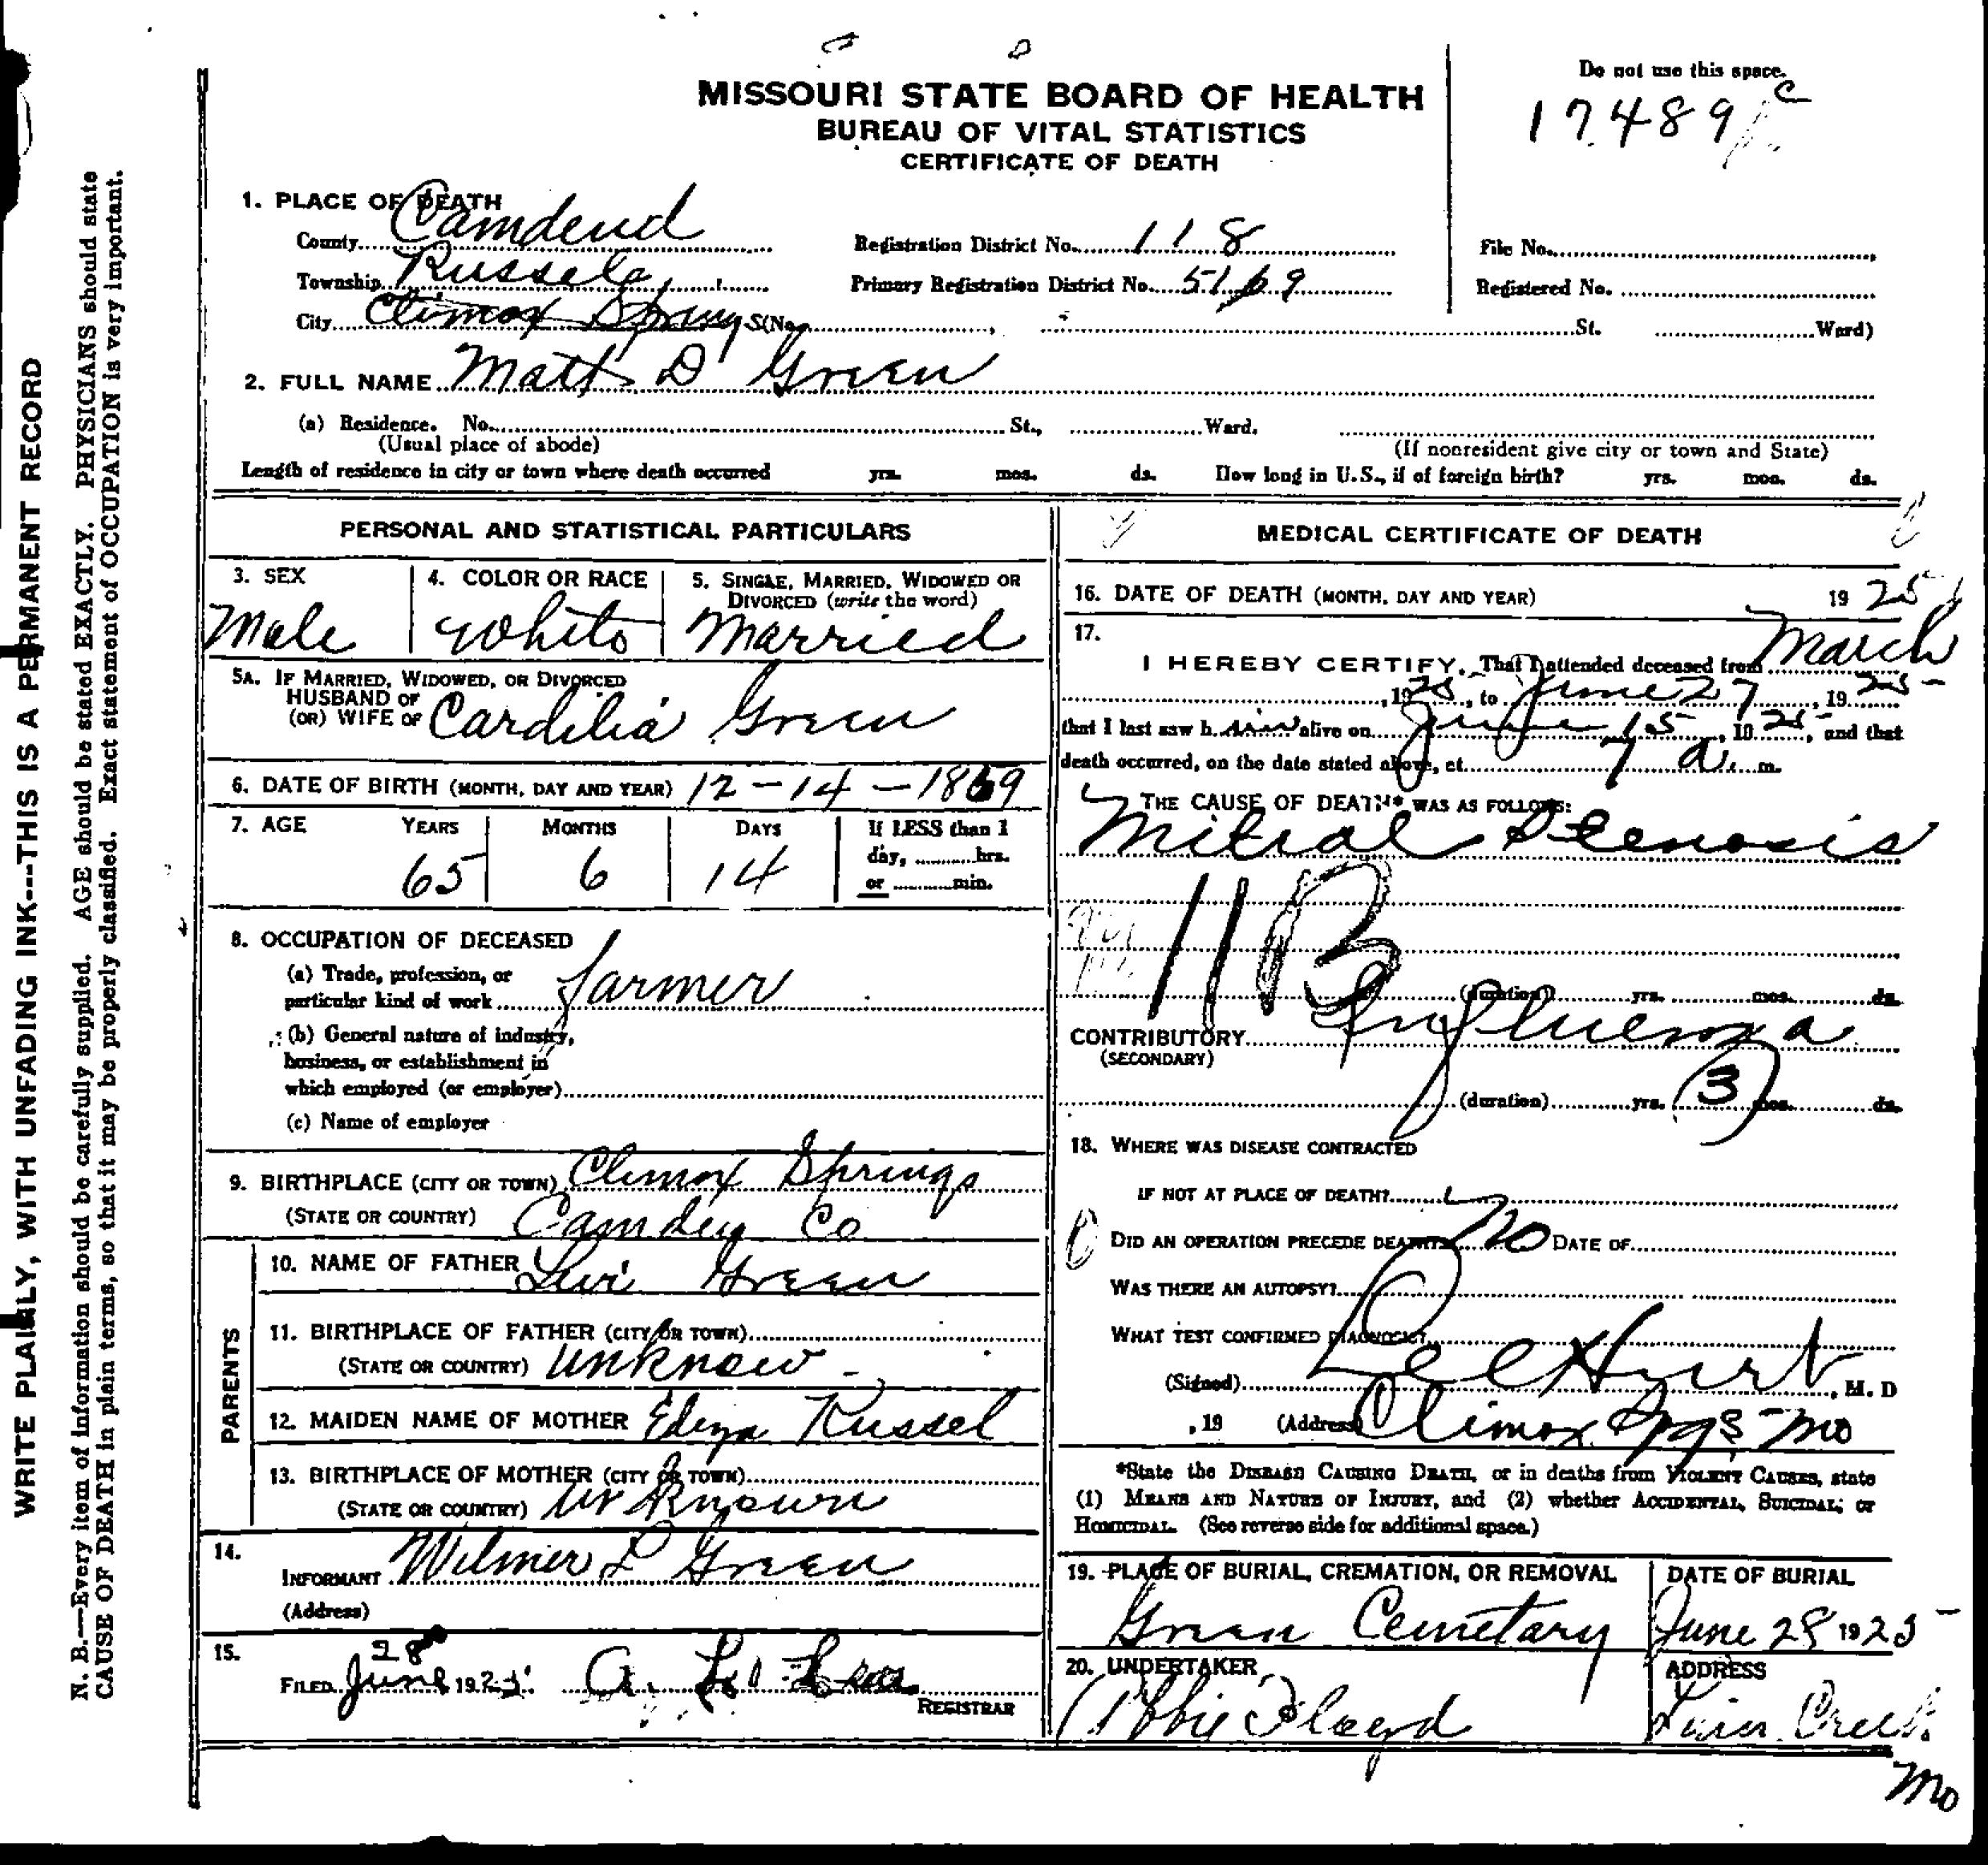 Do not use this space.
c
17489
MISSOURI STATE BOARD OF HEALTH
BUREAU OF VITAL STATISTICS
CERTIFICATE OF DEATH
1. PLACE OF DEATH
County Camdend Registration District No. 118 File No.
Township Russell Primary Registration District No. 5169 Registered No.
City Climox Springs (No. , St. Ward)
2. FULL NAME Matt D Green
(a) Residence. No. St., Ward.
(Usual place of abode) (If nonresident give city or town and State)
Length of residence in city or town where death occurred yrs. mos. ds. How long in U.S., if of foreign birth? yrs. mos. ds.
PERSONAL AND STATISTICAL PARTICULARS
3. SEX 4. COLOR OR RACE 5. SINGLE, MARRIED, WIDOWED OR
DIVORCED (write the word)
Male White Married
5A. IF MARRIED, WIDOWED, OR DIVORCED
HUSBAND OF
(OR) WIFE OF Cardilia Green
6. DATE OF BIRTH (MONTH, DAY AND YEAR) 12-14-1859
7. AGE YEARS MONTHS DAYS If LESS than 1
day, hrs.
or min.
65 6 14
8. OCCUPATION OF DECEASED
(a) Trade, profession, or
particular kind of work farmer
(b) General nature of industry,
business, or establishment in
which employed (or employer)
(c) Name of employer
9. BIRTHPLACE (CITY OR TOWN) Climox Springs
(STATE OR COUNTRY) Camden Co
PARENTS
10. NAME OF FATHER Levi Green
11. BIRTHPLACE OF FATHER (CITY OR TOWN)
(STATE OR COUNTRY) Unknow
12. MAIDEN NAME OF MOTHER Russel
13. BIRTHPLACE OF MOTHER (CITY OR TOWN)
(STATE OR COUNTRY) Unknown
14.
INFORMANT Wilmer L Green
(Address)
15.
28
FILED June 1925. A. L.
REGISTRAR
MEDICAL CERTIFICATE OF DEATH
16. DATE OF DEATH (MONTH, DAY AND YEAR) 1925
17.
I HEREBY CERTIFY, That I attended deceased from March
, 1925, to June 27, 1925
that I last saw him alive on June 15, 1925, and that
death occurred, on the date stated above, at 7 a. m.
THE CAUSE OF DEATH* WAS AS FOLLOWS:
Mitral Stenosis
11B
(duration) yrs. mos. ds.
CONTRIBUTORY Influenza
(SECONDARY)
(duration) yrs. (3) mos. ds.
18. WHERE WAS DISEASE CONTRACTED
IF NOT AT PLACE OF DEATH?
DID AN OPERATION PRECEDE DEATH? No DATE OF
WAS THERE AN AUTOPSY?
WHAT TEST CONFIRMED DIAGNOSIS?
(Signed) Lee Hurt, M. D
, 19 (Address) Climox Spgs Mo
*State the DISEASE CAUSING DEATH, or in deaths from VIOLENT CAUSES, state
(1) MEANS AND NATURE OF INJURY, and (2) whether ACCIDENTAL, SUICIDAL, or
HOMICIDAL. (See reverse side for additional space.)
19. PLACE OF BURIAL, CREMATION, OR REMOVAL DATE OF BURIAL
Green Cemetary June 28 1925
20. UNDERTAKER ADDRESS
Floyd Creek
Mo
WRITE PLAINLY, WITH UNFADING INK---THIS IS A PERMANENT RECORD
N. B.---Every item of information should be carefully supplied. AGE should be stated EXACTLY. PHYSICIANS should state
CAUSE OF DEATH in plain terms, so that it may be properly classified. Exact statement of OCCUPATION is very important.